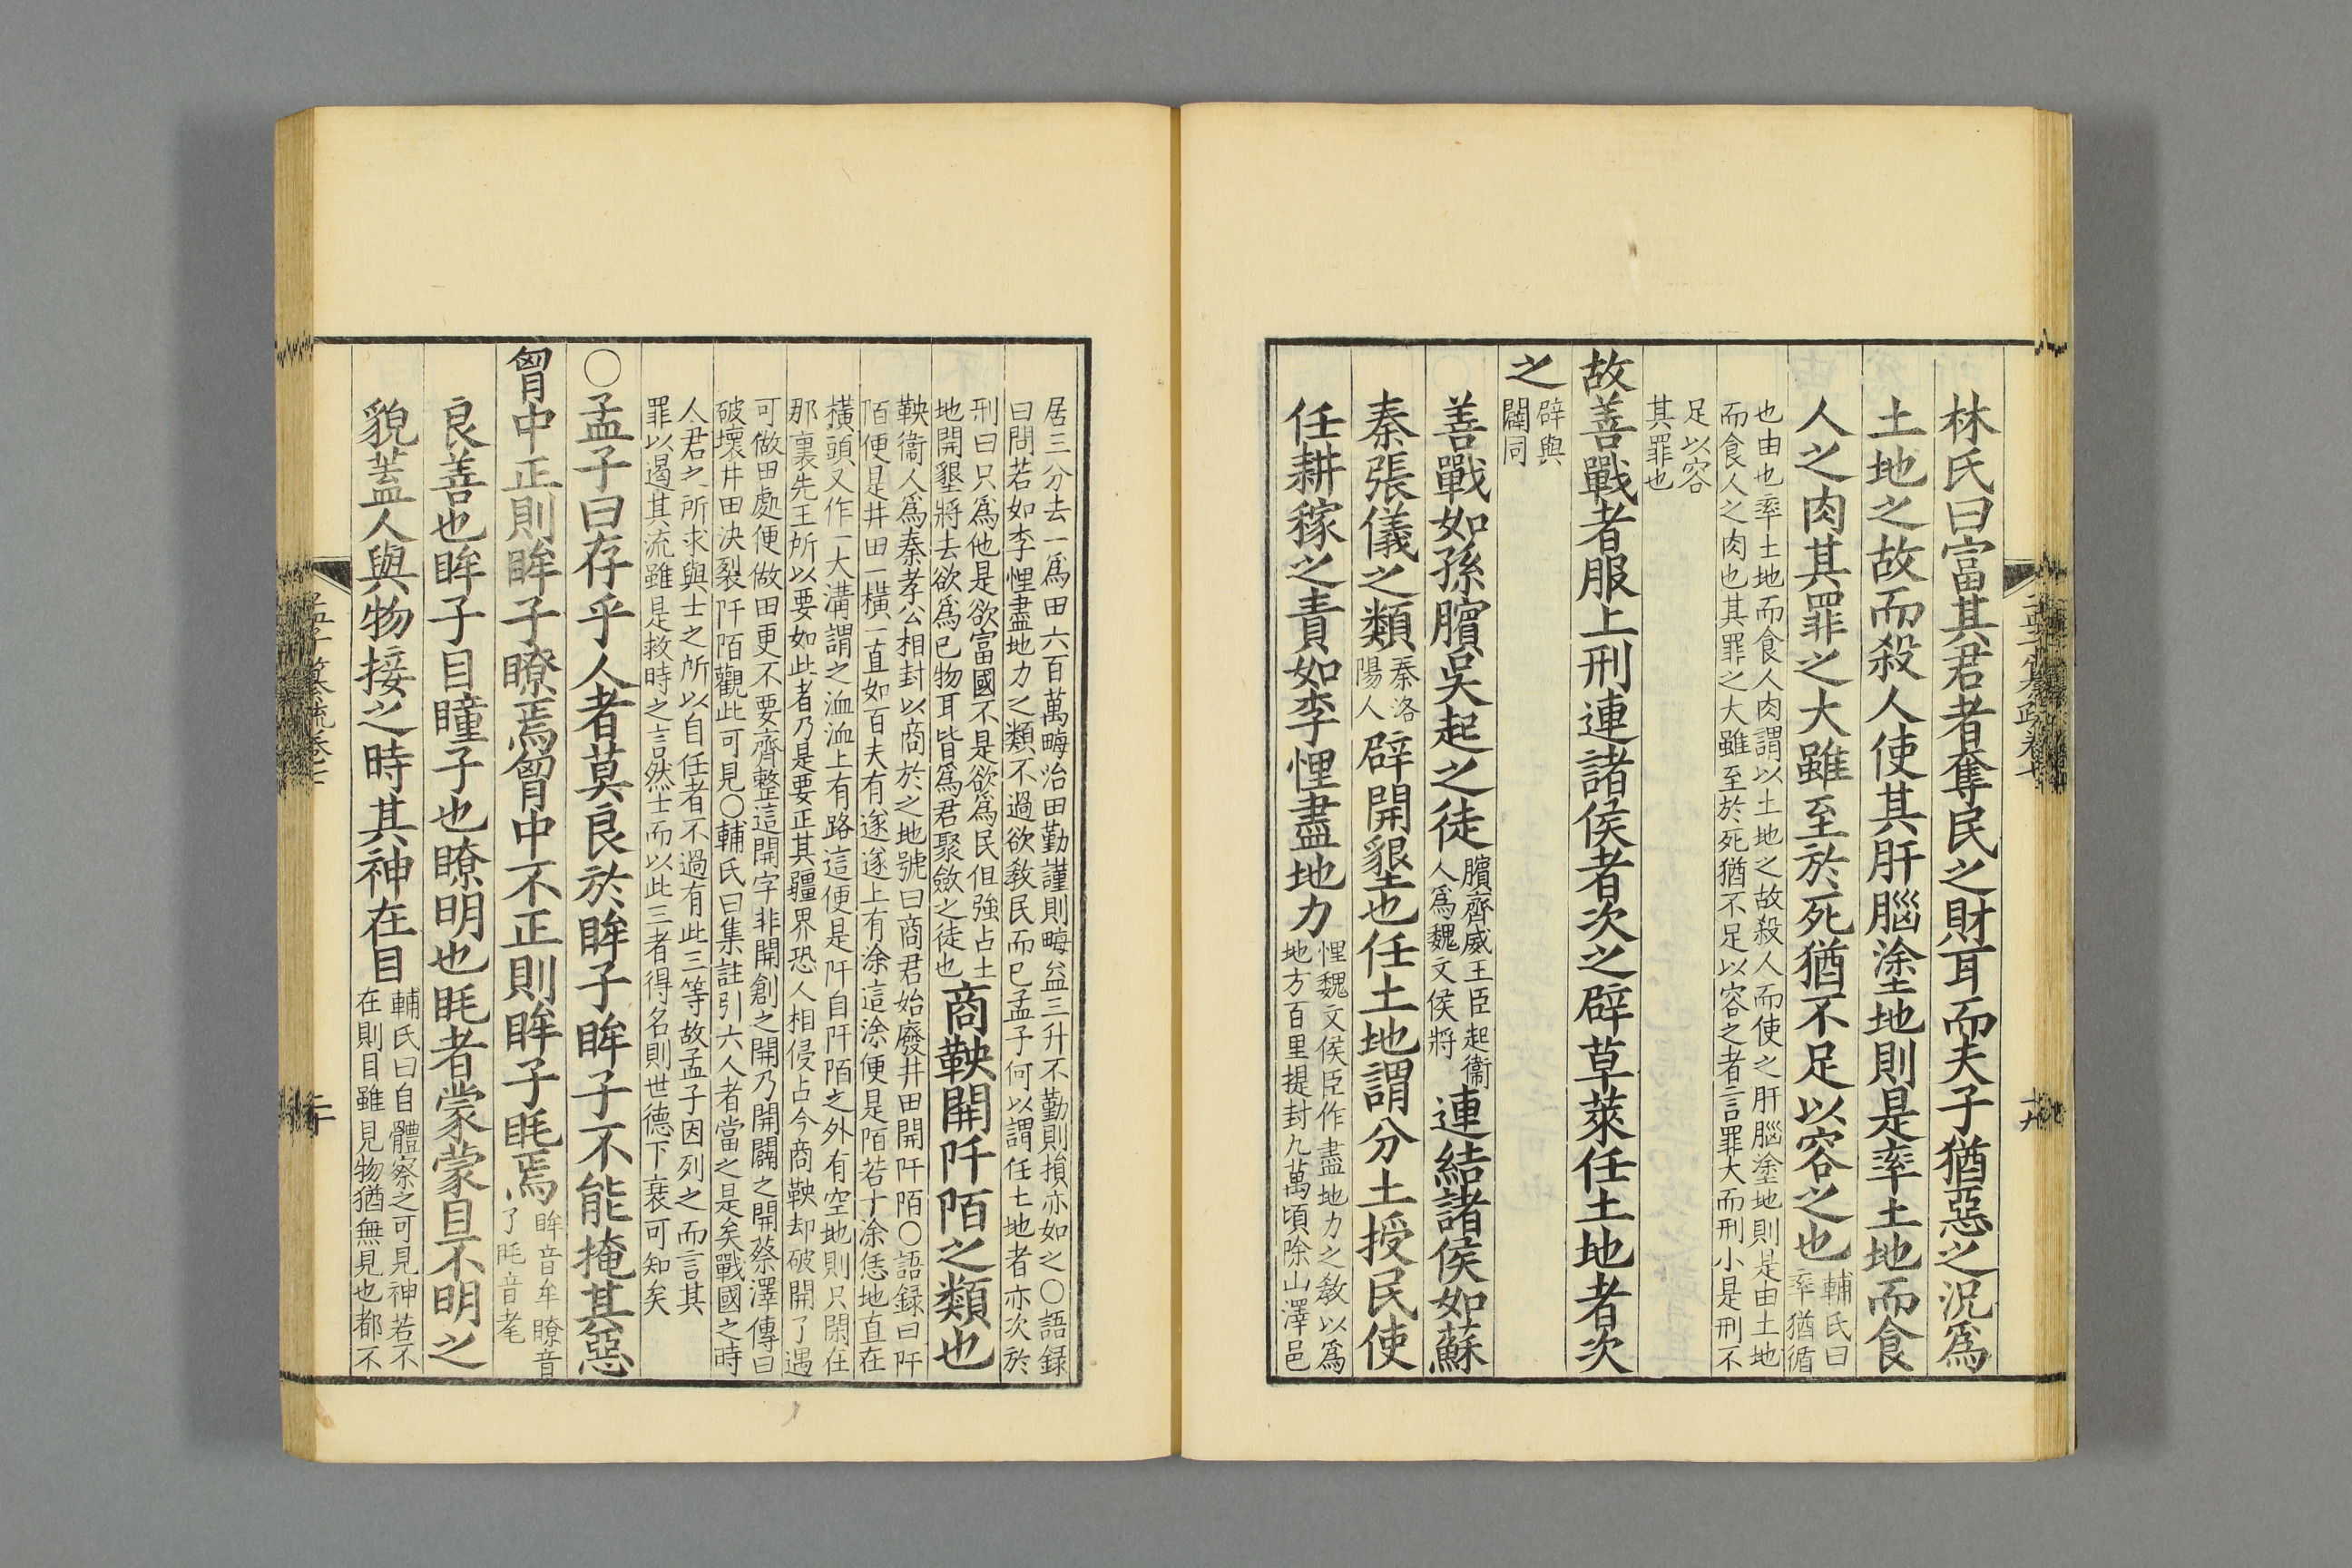 林氏曰富其君者奪民之財耳而夫子猶惡之況爲
土地之故而殺人使其肝腦塗地則是率土地而食
人之肉其罪之大雖至於死猶不足以容之也
輔氏曰
率猶循
也由也率土地而食人肉謂以土地之故殺人而使之肝腦塗地則是由土地
而食人之肉也其罪之大雖至於死猶不足以容之者言罪大而刑小是刑不
足以容
其罪也
故善戰者服上刑連諸侯者次之辟草萊任土地者次
之
辟與
闢同
善戰如孫臏吳起之徒
臏齊威王臣起衞
人爲魏文侯將
連結諸侯如蘇
秦張儀之類
秦洛
陽人
辟開墾也任土地謂分土授民使
任耕稼之責如李悝盡地力
悝魏文侯臣作盡地力之敎以爲
地方百里提封九萬頃除山澤邑
居三分去一爲田六百萬畮治田勤謹則畮益三升不勤則損亦如之○語録
曰問若如李悝盡地力之類不過欲敎民而已孟子何以謂任土地者亦次於
刑曰只爲他是欲富國不是欲爲民但強占土
地開墾將去欲爲己物耳皆爲君聚斂之徒也
商鞅開阡陌之類也
鞅衞人爲秦孝公相封以商於之地號曰商君始廢井田開阡陌○語録曰阡
陌便是井田一橫一直如百夫有遂遂上有涂這涂便是陌若十涂恁地直在
橫頭又作一大溝謂之洫洫上有路這便是阡自阡陌之外有空地則只閑在
那裏先王所以要如此者乃是要正其疆界恐人相侵占今商鞅却破開了遇
可做田處便做田更不要齊整這開字非開創之開乃開闢之開蔡澤傳曰
破壞井田決裂阡陌觀此可見○輔氏曰集註引六人者當之是矣戰國之時
人君之所求與士之所以自任者不過有此三等故孟子因列之而言其
罪以遏其流雖是救時之言然士而以此三者得名則世德下衰可知矣
○孟子曰存乎人者莫良於眸子眸子不能掩其惡
胷中正則眸子瞭焉胷中不正則眸子眊焉
眸音牟瞭音
了眊音耄
良善也眸子目瞳子也瞭明也眊者蒙蒙目不明之
貌蓋人與物接之時其神在目
輔氏曰自體察之可見神若不
在則目雖見物猶無見也都不